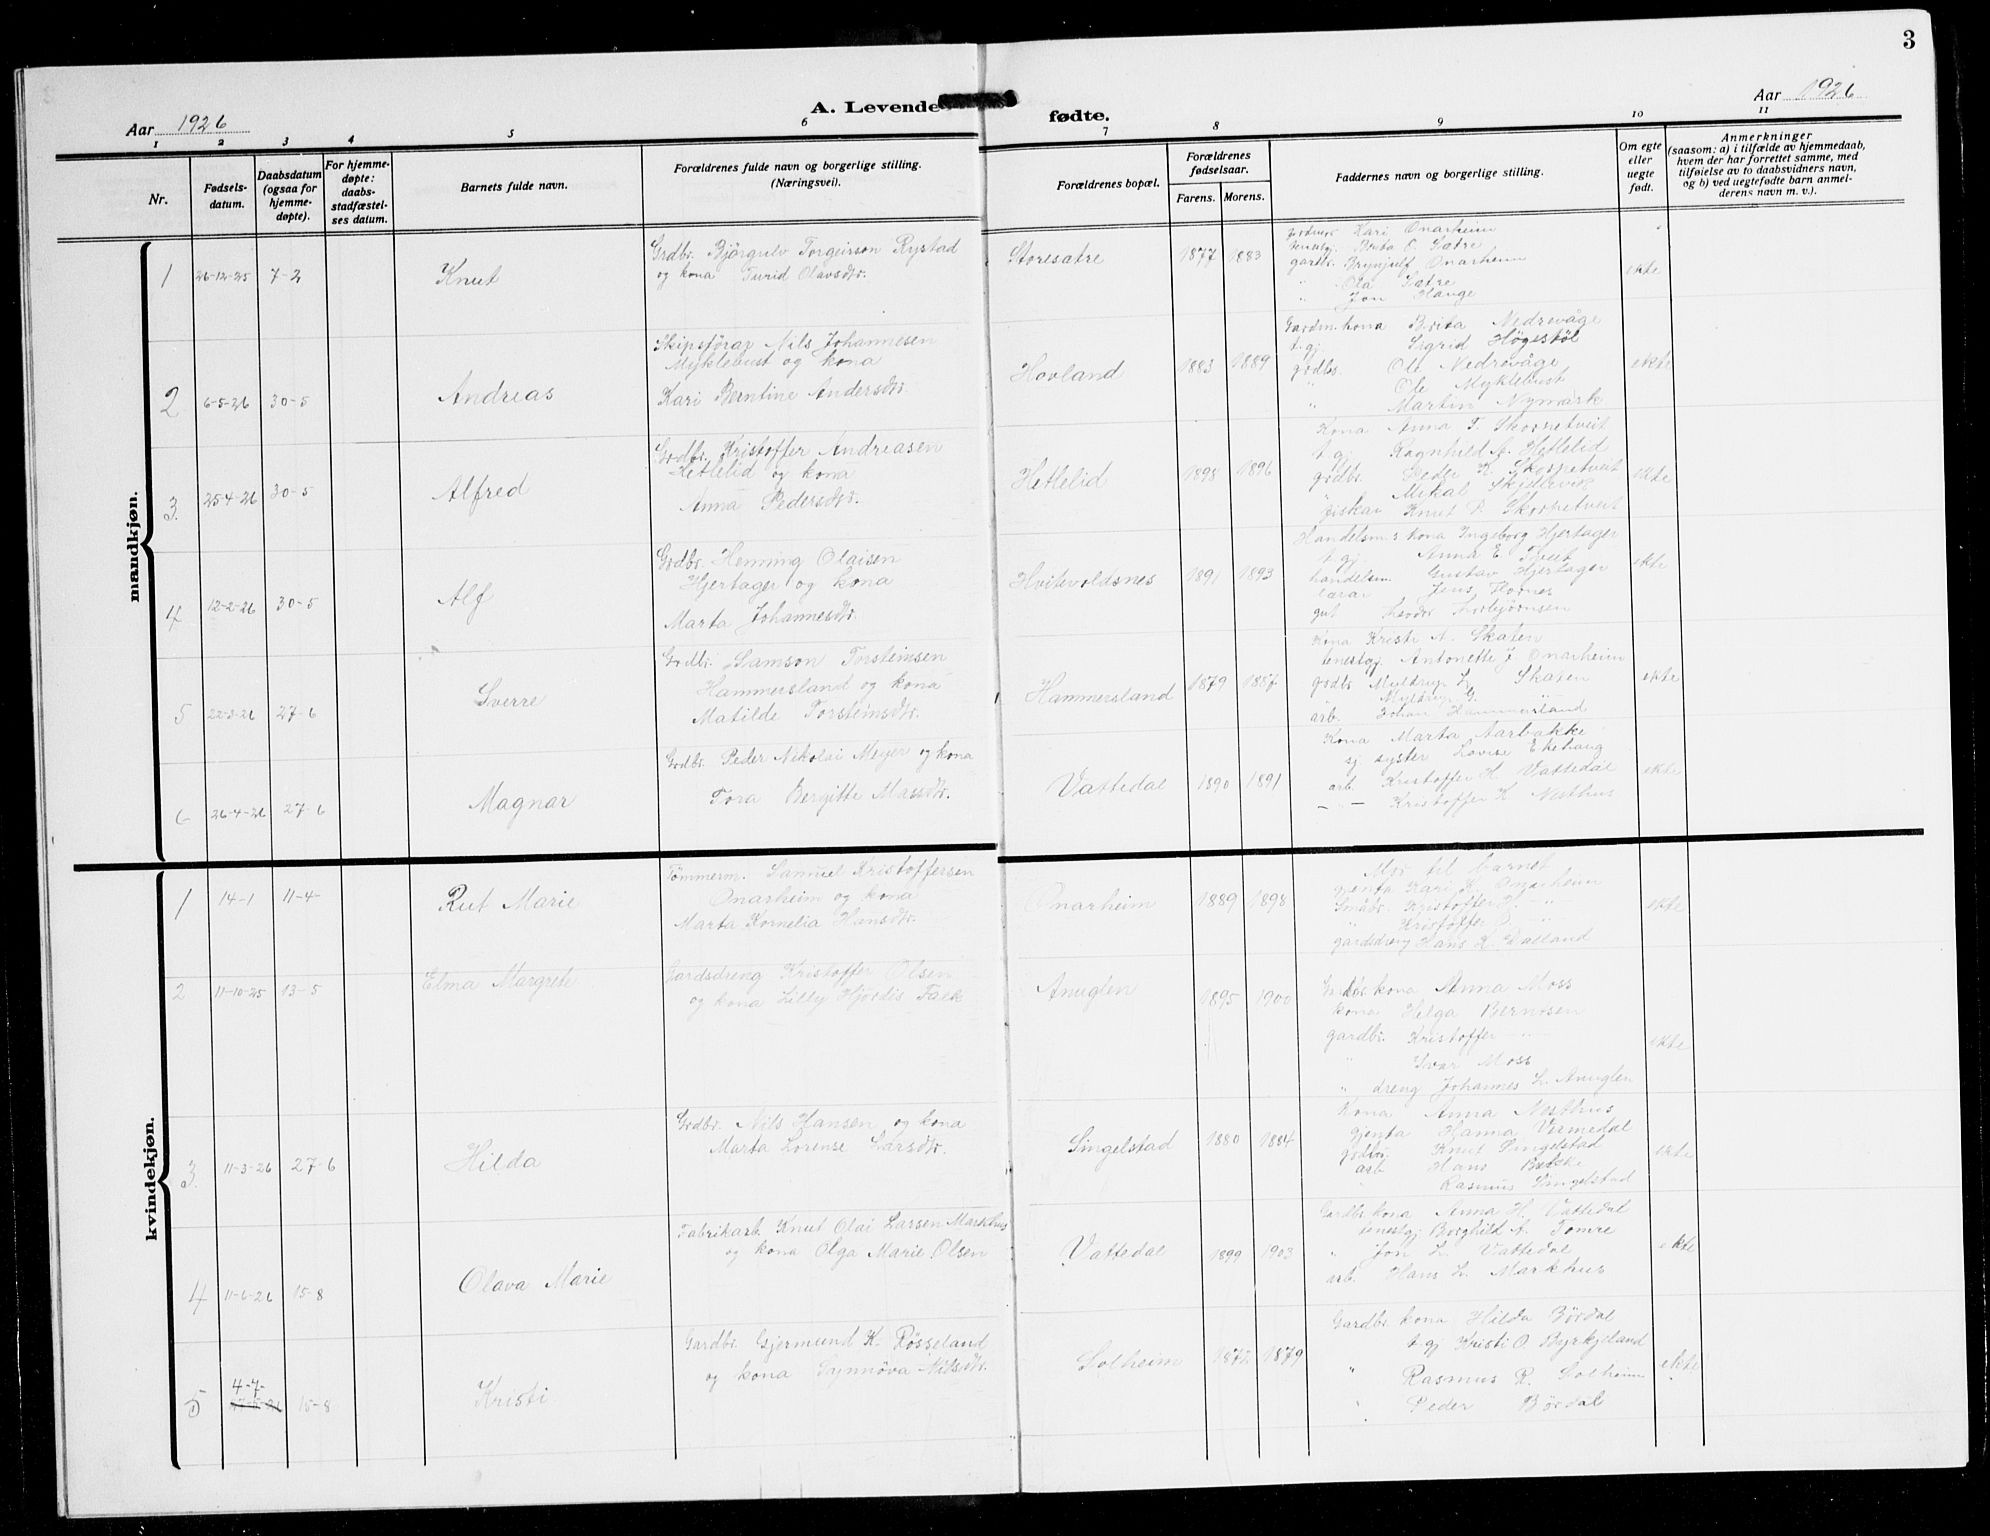 3
Aar 1926
A. Levende
fødte.
Aar 1926
1 2 3 4 5 6 7 8 9 10 11
Nr.
Fødsels-
datum.
Daabsdatum
(ogsaa for
hjemme-
døpte).
For hjemme-
døpte:
daabs-
stadfæstel-
ses datum.
Barnets fulde navn.
Forældrenes fulde navn og borgerlige stilling.
(Næringsvei).
Forældrenes bopæl.
Forældrenes
fødselsaar.
Farens. Morens.
Faddernes navn og borgerlige stilling.
Om egte
eller
uegte
født.
Anmerkninger
(saasom: a) i tilfælde av hjemmedaab,
hvem der har forrettet samme, med
tilføielse av to daabsvidners navn,
og b) ved uegtefødte barn anmel-
derens navn m. v.).
mandkjøn.
1 26-12-25 7-2 Knut
Grdbr. Björgulv Torgeirson Rystad
og kona Turid Olavsdtr.
Storesatre 1877 1883
Kari Onarheim
Brita O. Sætre
gardbr. Brynjulf Onarheim
" Ola Sætre
" Jon Hauge
ekte
2 6-5-26 30-5 Andreas
Skipsförar Nils Johannesen
Myklebust og kona
Kari Berntine Andersdtr.
Hovland 1883 1889
Gardm. kona Brita Nedrevåge
t. gj Sigrid Högestöl
grdbr. Ole Nedrevåge
" Ole Myklebust
" Martin Nymark
ekte
3. 25-4-26 30-5 Alfred
Grdbr. Kristoffer Andreasen
Hetlelid og kona
Anna Pedersdtr.
Hetlelid 1898 1896
Kona Anna T. Skorpetveit
t gj Ragnhild A. Hetlelid
grdbr. Peder K. Skorpetveit
Mikal Skjelevik
fiskar Knut P. Skorpetveit
ekte
4 12-2-26 30-5 Alf
Grdbr. Henning Olaisen
Hjertager og kona
Marta Johannesdtr.
Hvitevoldsnes 1891 1893
Handelsm:s kona Ingeborg Hjertager
t gj Anna E. Tveit
handelsm Gustav Hjertager
lærar Jens Hovnes
gut Theodor Torbjörnsen
ekte
5 22-3-26 27-6 Sverre
Grdbr. Samson Torsteinsen
Hammersland og kona
Matilde Torsteinsdtr.
Hammersland 1879 1887
Kona Kristi A. Skaten
tenestgj. Antonette J. Onarheim
grdbr Myldrup L. Skaten
Myldrup G. "
arb. Johan Hammersland
ekte
6 26-4-26 27-6 Magnar
Grdbr. Peder Nikolai Meyer og kona
Tora Bergitte Massdtr.
Vattedal 1890 1891
Kona Marta Aarbakke
sj syster Lovise Ekehaug
arb. Kristoffer H. Vattedal
— " — Kristoffer K Nesthus
ekte
kvindekjøn.
1 14-1 11-4- Rut Marie
Tömmerm. Samuel Kristoffersen
Onarheim og kona
Marta Kornelia Hansdtr.
Onarheim 1889 1898
Mor til barnet
gjenta Kari K. Onarheim
Småbr. Kristoffer H — " —
" Kristoffer O. — " —
gardsdreng Hans K. Dalland
ekte
2 11-10-25 13-5 Elma Margrete
Gardsdreng Kristoffer Olsen
og kona Lilly Hjördis Falk
Anuglen 1895 1900
Grdbr. kona Anna Moss
kona Helga Berntsen
gardbr. Kristoffer — " —
" Ivar Moss
" dreng Johannes L. Anuglen
ekte
3. 11-3-26 27-6 Hilda
Grdbr. Nils Hansen og kona
Marta Lorense Larsdtr.
Singelstad 1880 1884
Kona Anna Nesthus
gjenta Hanna Vermedal
grdbr. Knut Singelstad
arb Hans Bakke
" Rasmus Singelstad
ekte
4 11-6-26 15-8 Olava Marie
Fabrikarb. Knut Olai Larsen Markhus
og kona Olga Marie Olsen
Vattedal 1899 1903
Gardbr. kona Anna H. Vattedal
tenestgj Borghild A. Tomre
" Jon L. Vattedal
arb. Hans L. Markhus
ekte
5 4-7- 15-8 Kristi
Gardbr. Gjermund K. Røsseland
og kona Synnöva Nilsdtr.
Solheim 1872 1879
Gardbr. kona Hilda Bördal
t. gj Kristi O. Byrkjeland
" Rasmus R. Solheim
" Peder Bördal
ekte